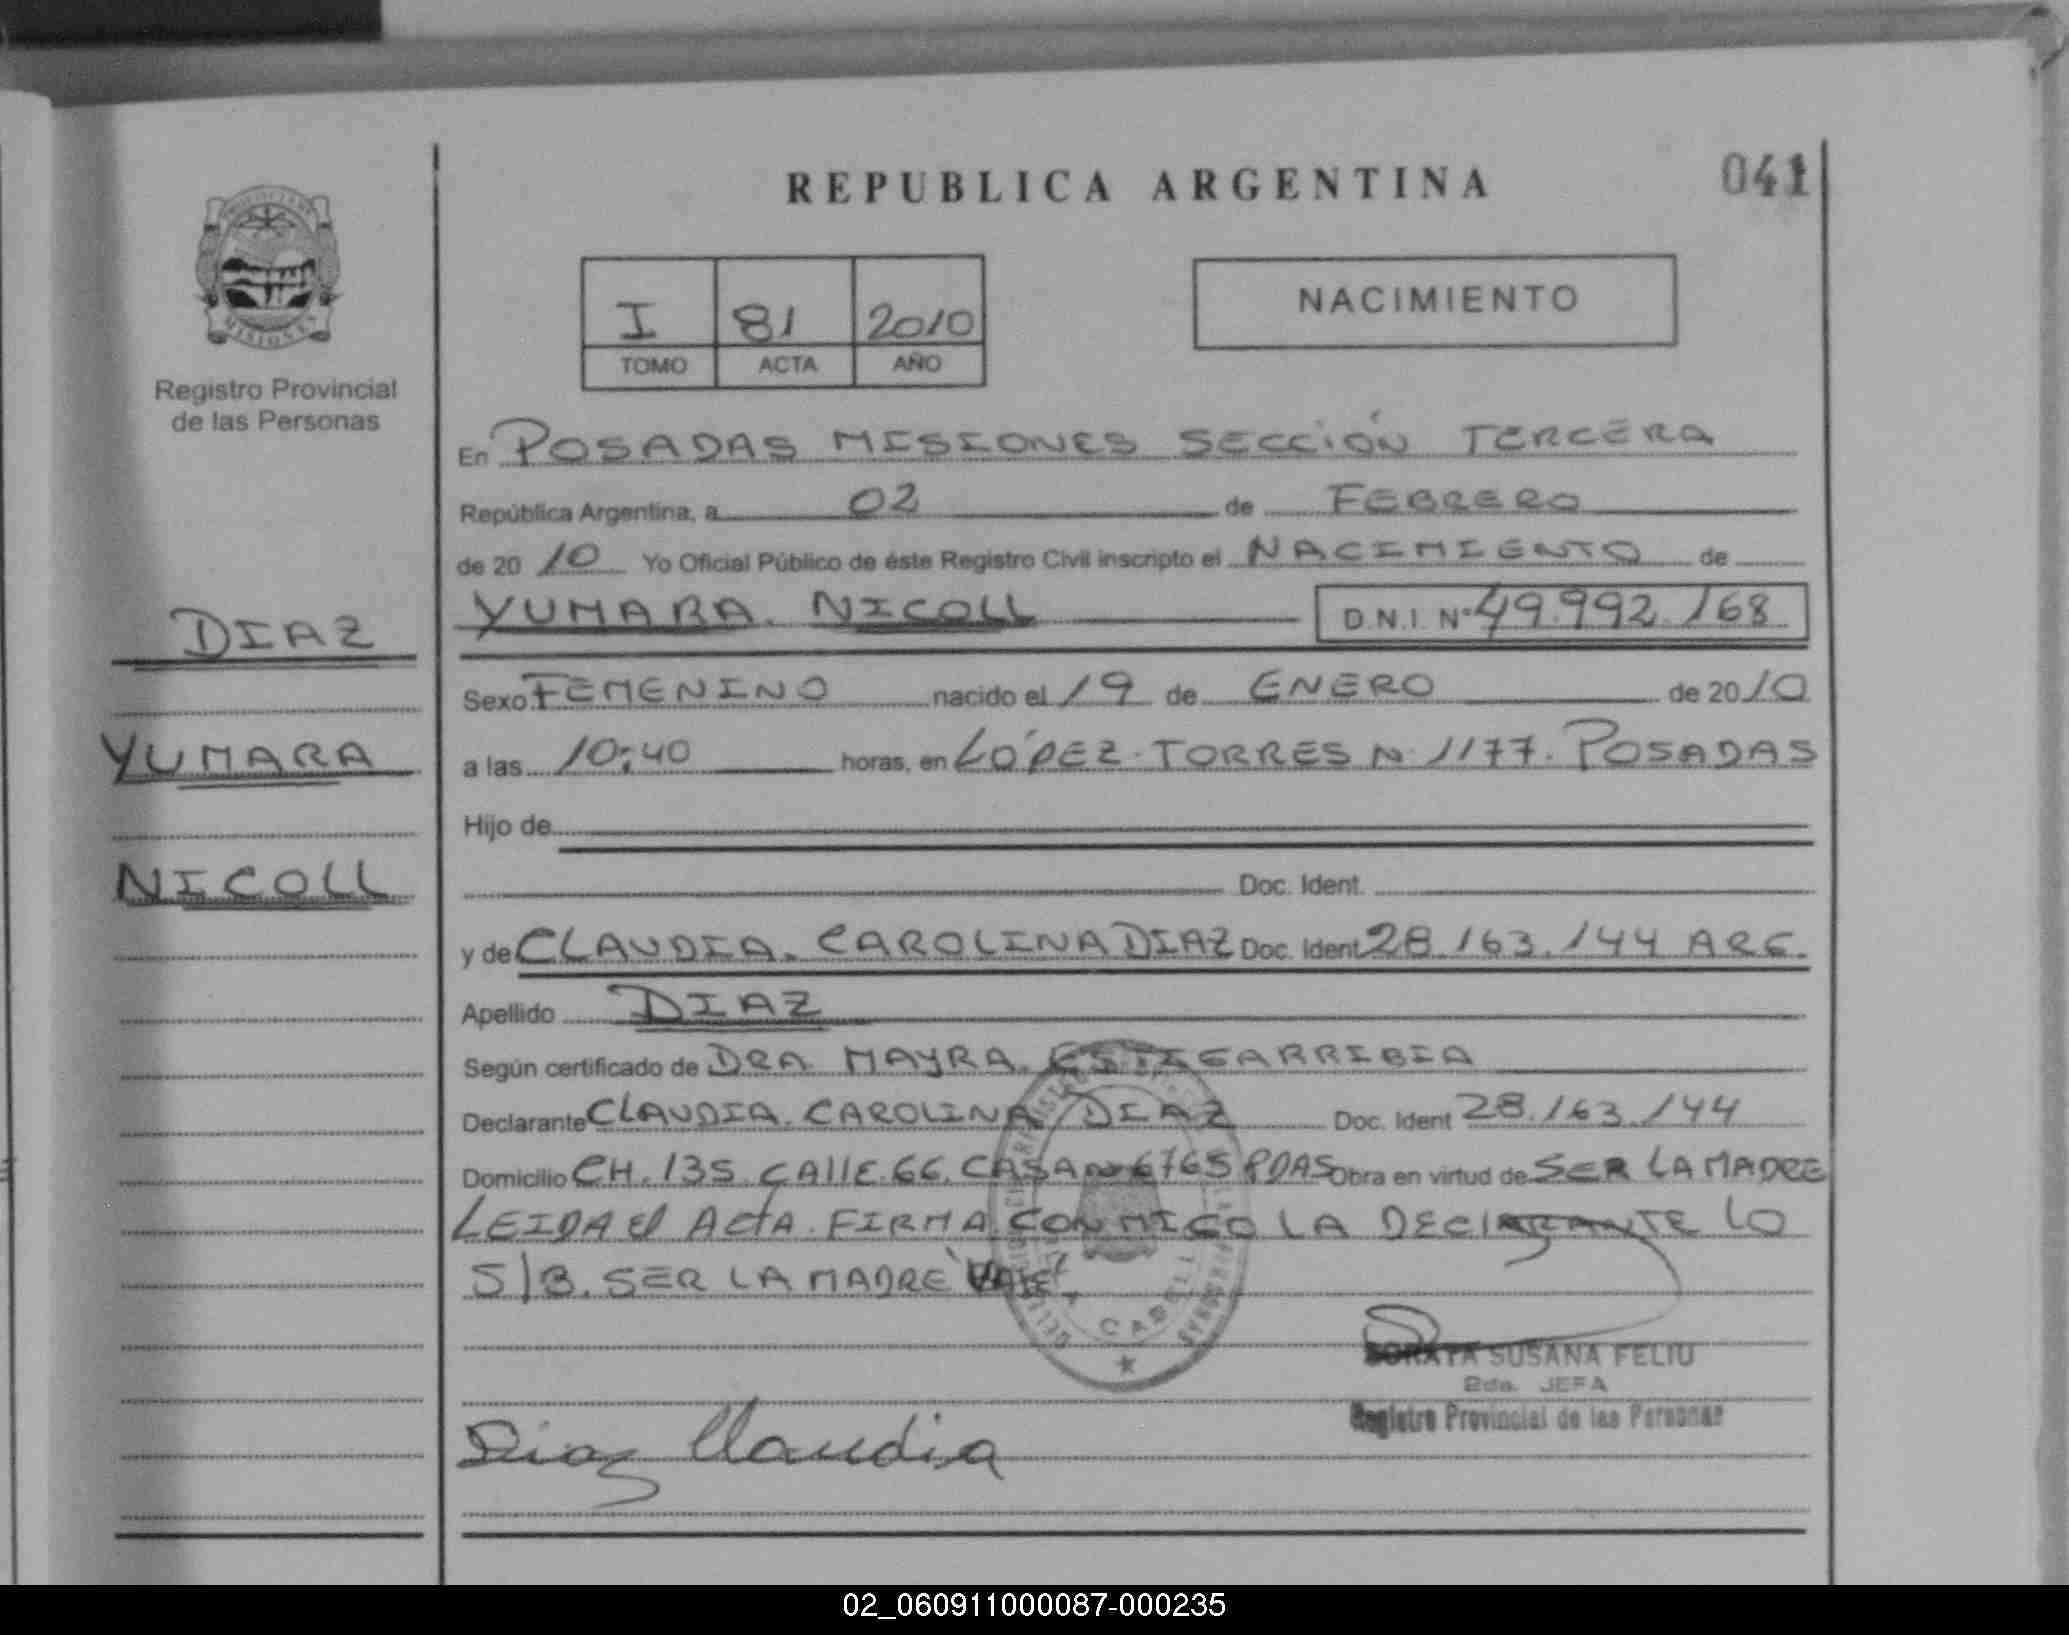 041
REPUBLICA ARGENTINA
PROVINCIA DE
MISIONES
Registro Provincial
de las Personas
I 81 2010
TOMO ACTA AÑO
NACIMIENTO
En POSADAS MISIONES SECCIÓN TERCERA
República Argentina, a 02 de FEBRERO
de 20 10 Yo Oficial Público de éste Registro Civil inscripto el NACIMIENTO de
YUMARA. NICOLL D.N.I. Nº 49.992.168
DIAZ
YUMARA
NICOLL
Sexo FEMENINO nacido el 19 de ENERO de 2010
a las 10:40 horas, en LÓPEZ TORRES N 1177. POSADAS
Hijo de
Doc. Ident.
y de CLAUDIA. CAROLINA DIAZ Doc. Ident 28.163.144 ARG.
Apellido DIAZ
Según certificado de DRA MAYRA ESTIGARRIBIA
Declarante CLAUDIA. CAROLINA DIAZ Doc. Ident 28.163.144
Domicilio CH. 135 CALLE 66. CASA Nº 6765 PDAS Obra en virtud de SER LA MADRE
LEIDA El ACTA FIRMA CONMIGO LA DEClARANTE LO
S/B. SER LA MADRE VALE
CABELL
SUSANA FELIU
2da. JEFA
Registro Provincial de las Personas
Diaz Claudia
02_060911000087-000235